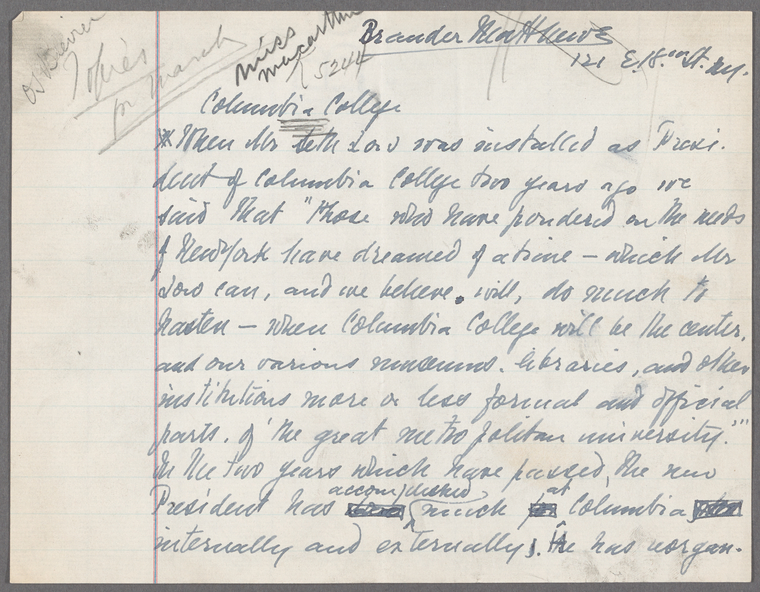 Topics
for March
Miss
Macarthur
5244
Brander Matthews
121 E. 18th St. N.Y.
Columbia College
When Mr Seth Low was installed as Presi-
dent of Columbia College two years ago we
said that "those who have pondered on the needs
of New York have dreamed of a time — which Mr
Low can, and we believe, will, do much to
hasten — when Columbia College will be the center,
and our various museums, libraries, and other
institutions more or less formal and official
parts, of the great metropolitan university."
In the two years which have passed, the new
accomplished at
President has much Columbia
internally and externally. He has reorgan-